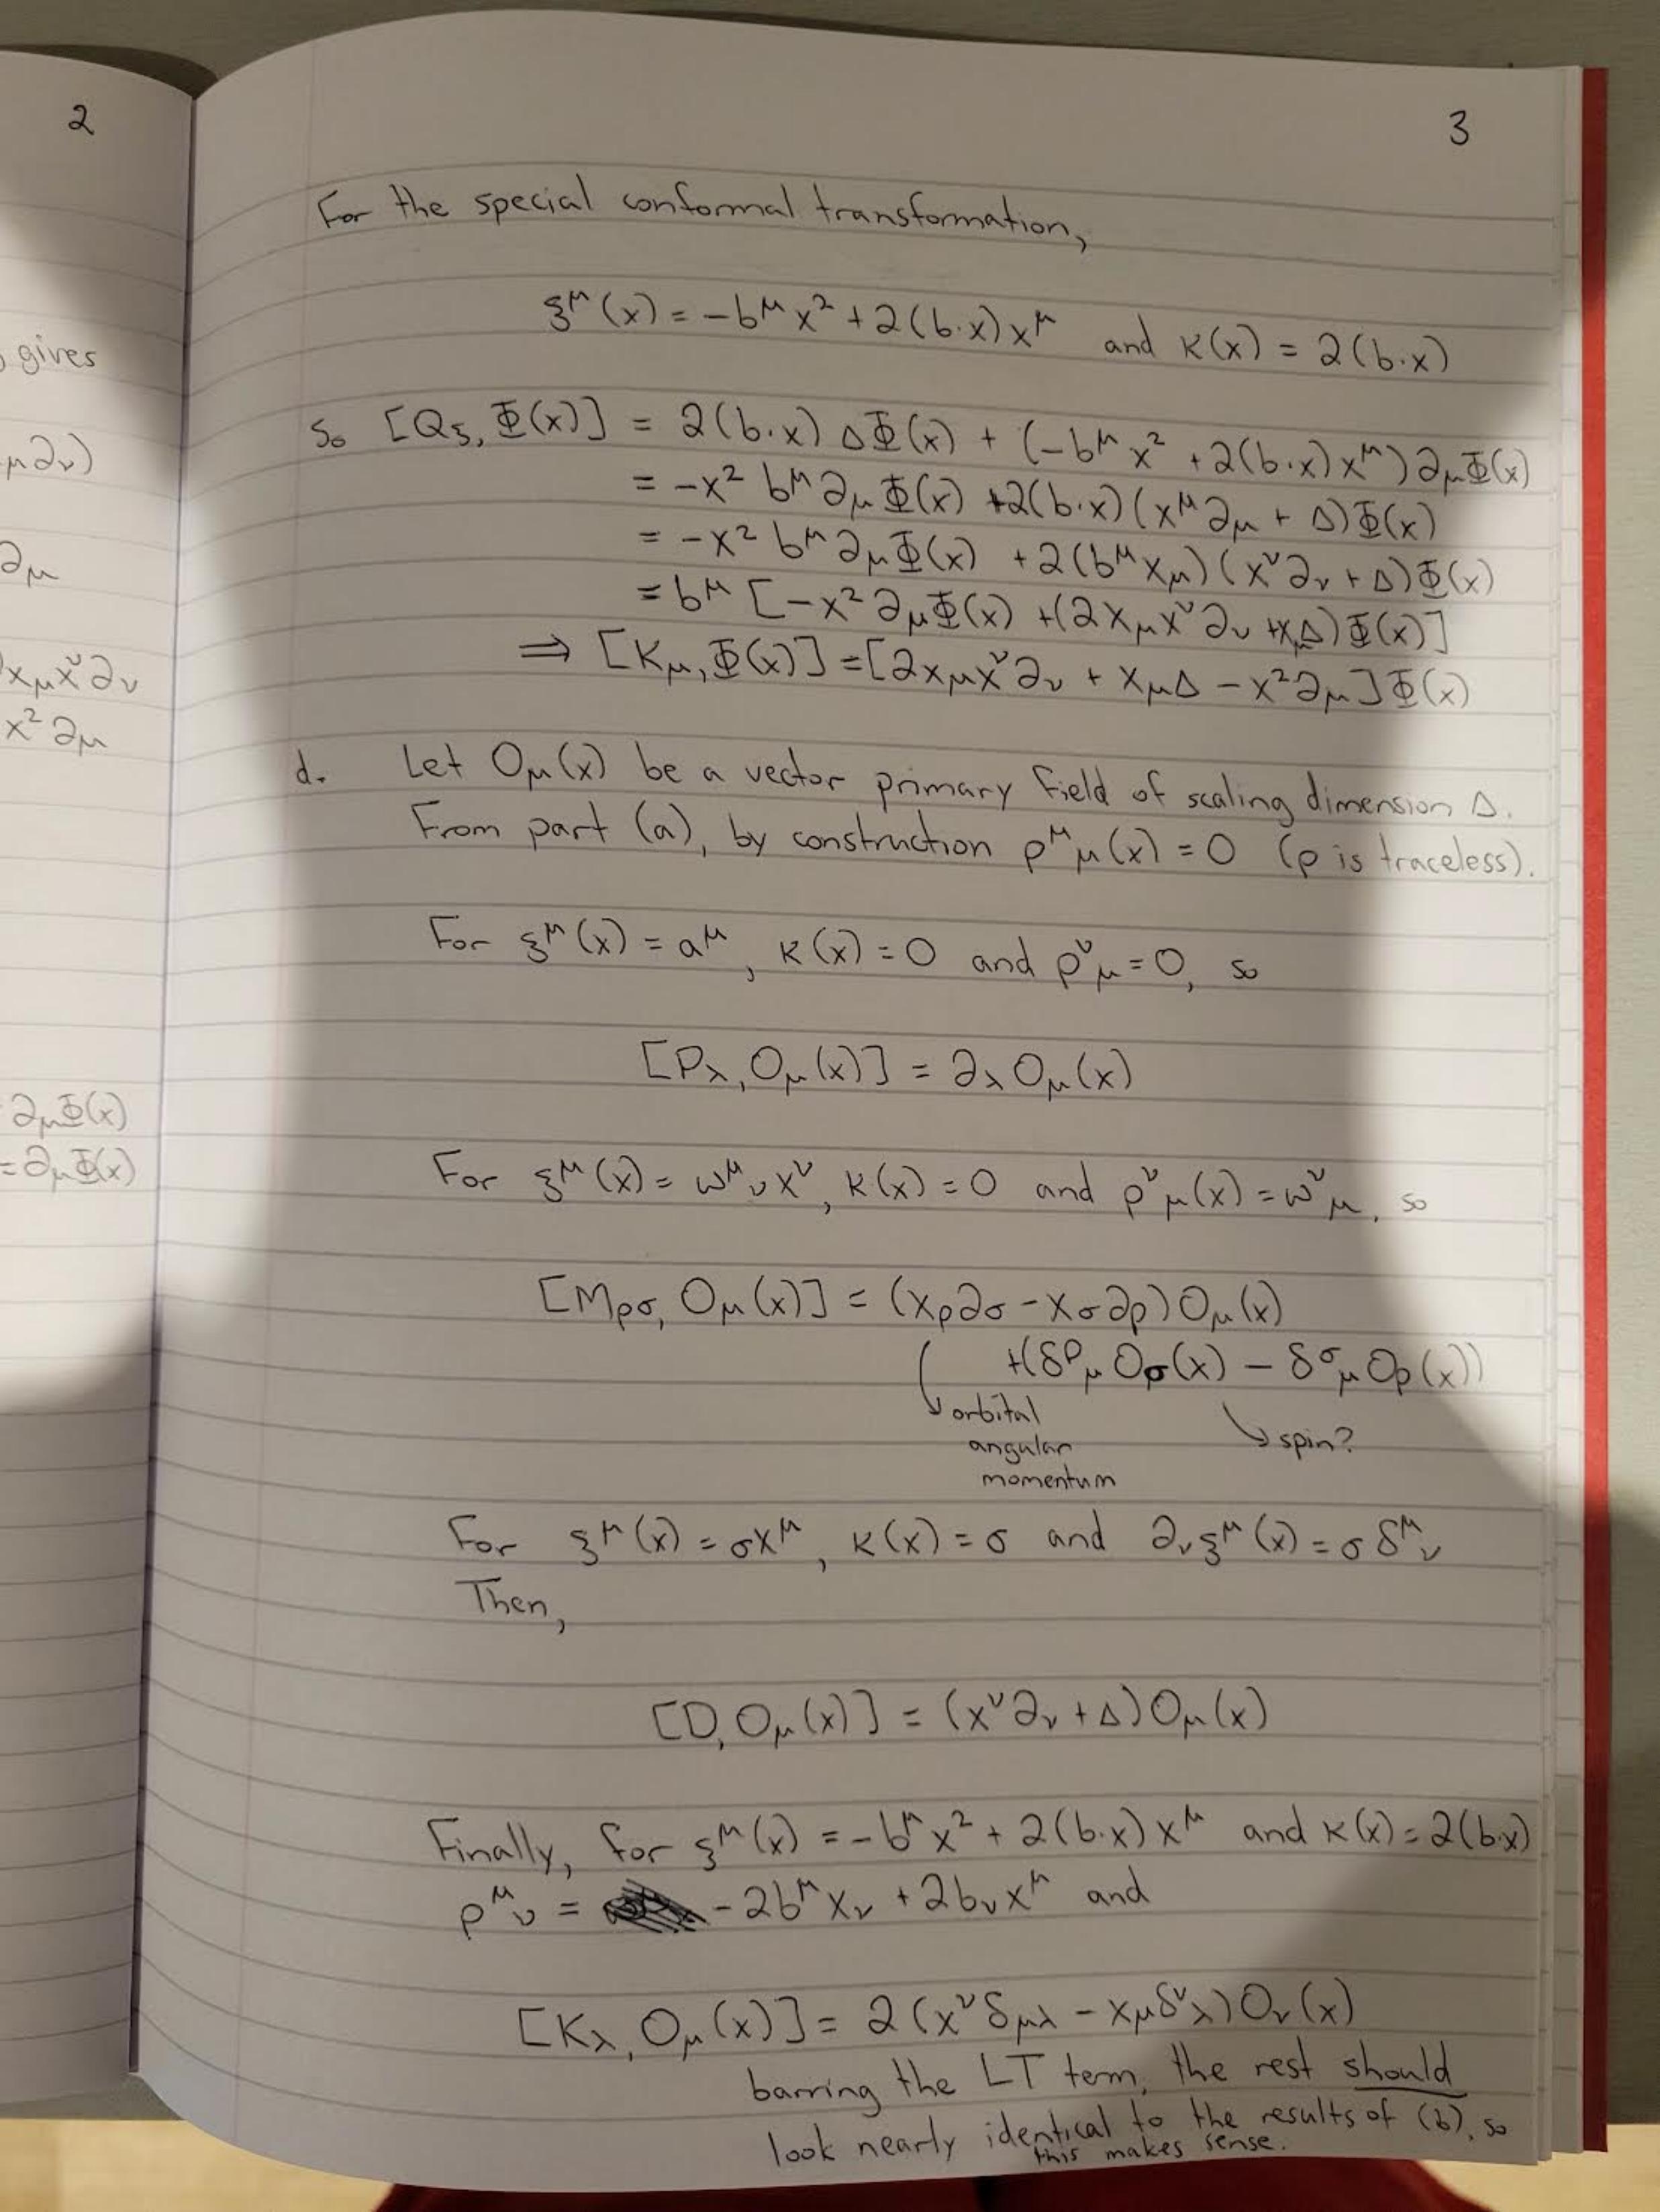 2
gives
μ∂ν)
∂μ
xμx^ν∂ν
x²∂μ
∂μΦ(x)
=∂μΦ(x)
3
For the special conformal transformation,
ξ^μ(x) = -b^μ x² + 2(b·x)x^μ and κ(x) = 2(b·x)
So [Q_ξ, Φ(x)] = 2(b·x) ΔΦ(x) + (-b^μ x² + 2(b·x)x^μ)∂_μΦ(x)
= -x² b^μ∂_μΦ(x) +2(b·x)(x^μ∂_μ + Δ)Φ(x)
= -x² b^μ∂_μΦ(x) +2(b^μx_μ)(x^ν∂_ν + Δ)Φ(x)
= b^μ [-x²∂_μΦ(x) +(2x_μx^ν∂_ν +x_μΔ)Φ(x)]
⇒ [K_μ, Φ(x)] = [2x_μx^ν∂_ν + x_μΔ - x²∂_μ]Φ(x)
d. Let O_μ(x) be a vector primary field of scaling dimension Δ.
From part (a), by construction ρ^μ_μ(x) = 0 (ρ is traceless).
For ξ^μ(x) = a^μ, κ(x) = 0 and ρ^ν_μ = 0, so
[P_λ, O_μ(x)] = ∂_λ O_μ(x)
For ξ^μ(x) = ω^μ_ν x^ν, κ(x) = 0 and ρ^ν_μ(x) = ω^ν_μ, so
[M_ρσ, O_μ(x)] = (x_ρ∂_σ - x_σ∂_ρ)O_μ(x)
+(δ^ρ_μ O_σ(x) - δ^σ_μ O_ρ(x))
orbital
angular
momentum
spin?
For ξ^μ(x) = σx^μ, κ(x) = σ and ∂_νξ^μ(x) = σδ^μ_ν
Then,
[D, O_μ(x)] = (x^ν∂_ν + Δ)O_μ(x)
Finally, for ξ^μ(x) = -b^μ x² + 2(b·x)x^μ and κ(x) = 2(b·x)
ρ^μ_ν = -2b^μ x_ν + 2b_ν x^μ and
[K_λ, O_μ(x)] = 2(x^ν δ_μλ - x_μ δ^ν_λ)O_ν(x)
barring the LT term, the rest should
look nearly identical to the results of (b), so
this makes sense.